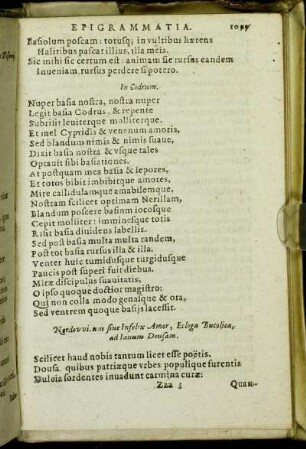 EPIGRAMMATIA.
Basiolum poscam: totusq; in vultibus hærens
Halitibus pascar illius, illa meis.
Sic mihi sic certum est: animam sic rursus eandem
Inueniam, rursus perdere si potero.
In Codrum.
Nuper basia nostra, nostra nuper
Legit basia Codrus, & repente
Subrisit leuiterque molliterque.
Et mel Cypridis & venenum amoris,
Sed blandum nimis & nimis suaue,
Dixit basia nostra & vsque tales
Optauit sibi basiationes.
At postquam mea basia & lepores,
Et totos bibit imbibitque amores,
Mire callidulamque amabilemque,
Nostram scilicet optimam Nerillam,
Blandum poscere basium iocosque
Cepit molliter: imminesque totis
Risit basia diuidens labellis.
Sed post basia multa multa tandem,
Post tot basia rursus illa & illa.
Venter huic tumidusque turgidusque
Paucis post superi fuit diebus.
Miræ discipulus suauitatis,
O ipso quoque doctior magistro:
Qui non colla modo genasque & ora,
Sed ventrem quoque basijs lacessit.
siue Infelix Amor, Ecloga Bucolica,
ad Ianum Dousam.
Scilicet haud nobis tantum licet esse poëtis,
Dousa. quibus patriæque vrbes populique furentis
Duloia sordentes inuadunt carmina curæ:
Zzz 5 Quan-